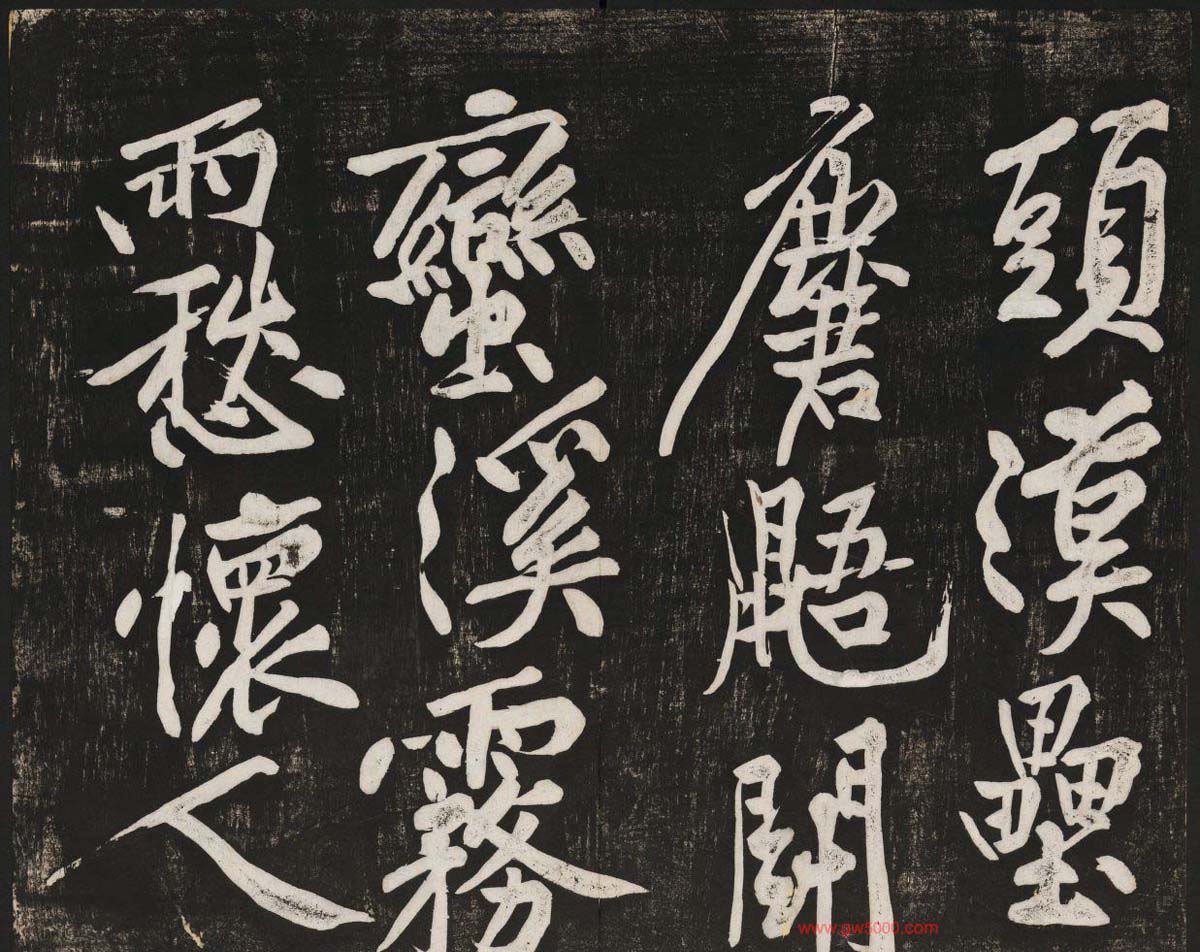 頭漢壘
麏鼯鬥
蠻溪霧
雨愁懷人
www.gw5000.com